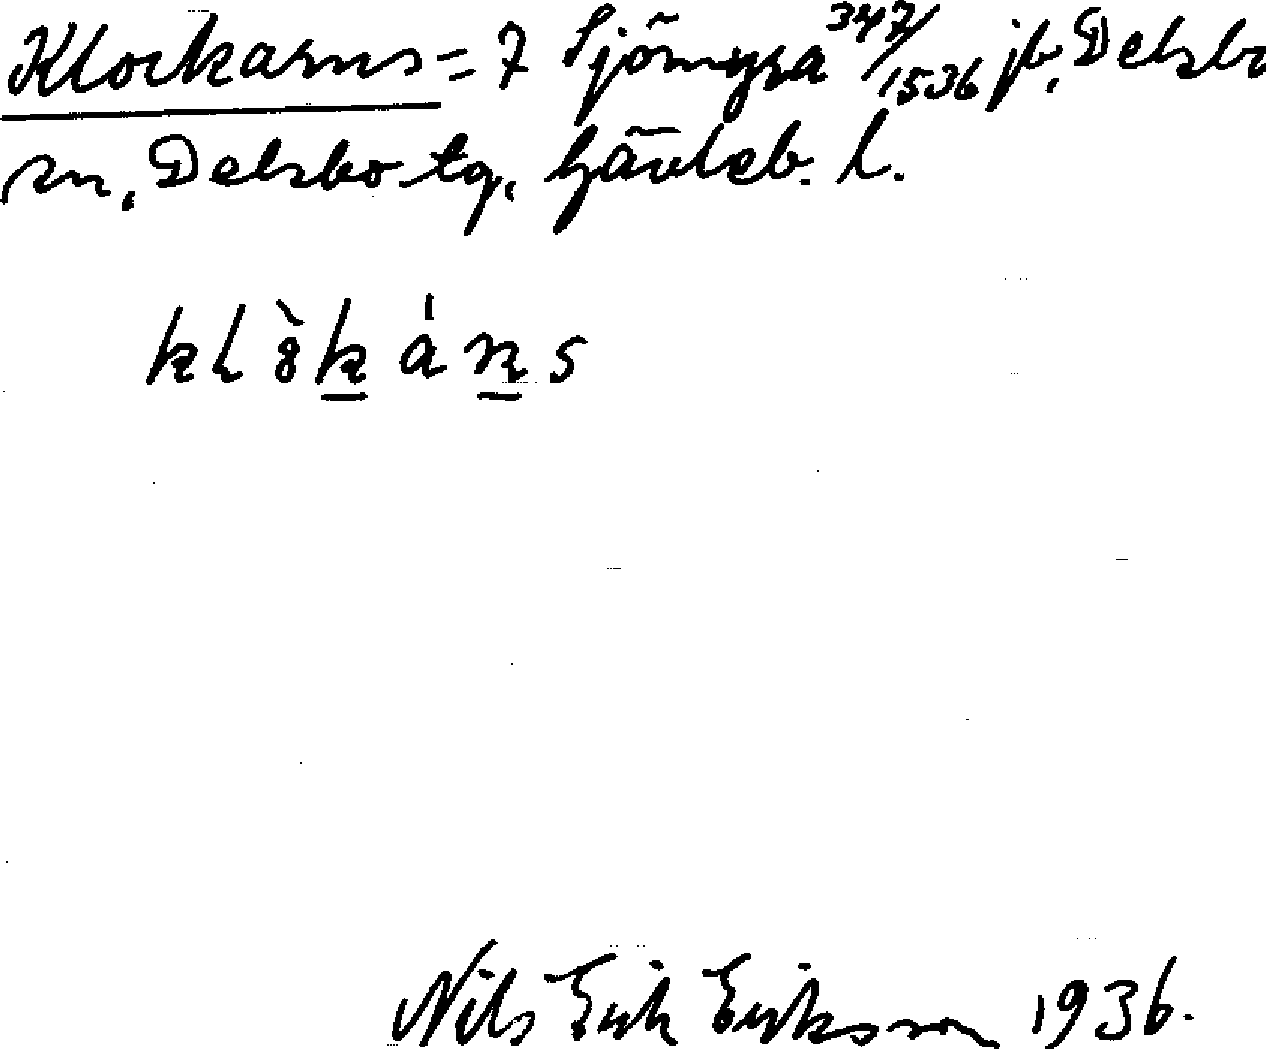 Klockarns = 7 Sjömyra 347/1536 jb, Delsbo
sn, Delsbo tg, Gävleb. l.
kl`8k á ns
Nils Erik Eriksson 1936.